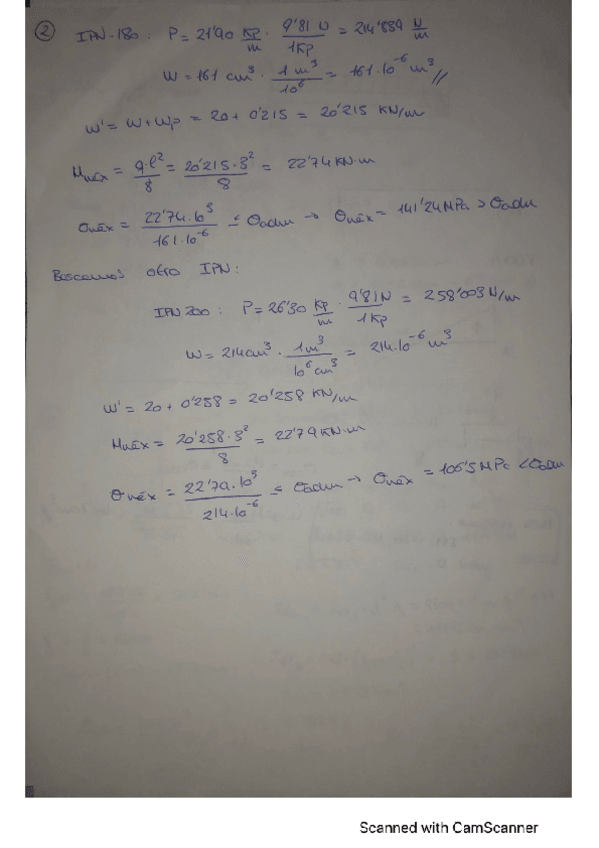 ② IPN-180 : P = 21'90 Kp/m · 9'81 N/1Kp = 214'839 N/m
W = 161 cm³ · 1 m³/10⁶ = 161·10⁻⁶ m³ //
W' = W + Wp = 20 + 0'215 = 20'215 KN/m
Mmáx = q·l²/8 = 20'215·3²/8 = 22'74 KN·m
σmáx = 22'74·10³/161·10⁻⁶ ≤ σadm → σmáx = 141'24 MPa > σadm
Buscamos otro IPN:
IPN 200 : P = 26'30 Kp/m · 9'81N/1Kp = 258'003 N/m
W = 214 cm³ · 1m³/10⁶cm³ = 214·10⁻⁶ m³
W' = 20 + 0'258 = 20'258 KN/m
Mmáx = 20'258·3²/8 = 22'79 KN·m
σmáx = 22'79·10³/214·10⁻⁶ ≤ σadm → σmáx = 106'5 MPa < σadm
Scanned with CamScanner